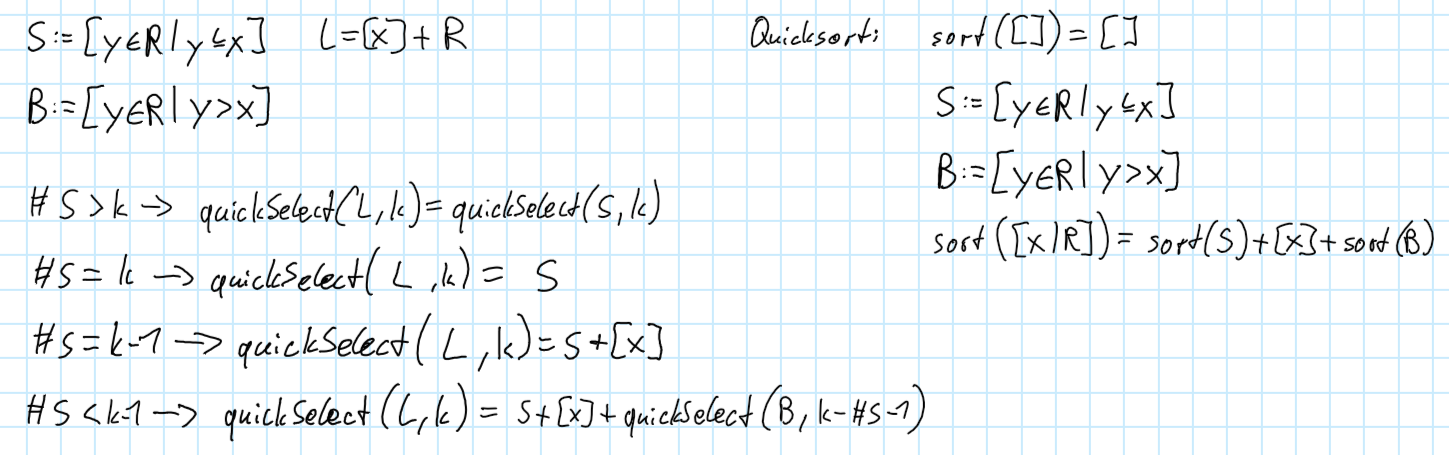 S:=[y∈R|y≤x] L=[x]+R
B:=[y∈R|y>x]
#S>k→ quickSelect(L,k)=quickSelect(S,k)
#S=k→quickSelect(L,k)= S
#S=k-1→quickSelect(L,k)=S+[x]
#S<k-1→ quickSelect(L,k)= S+[x]+quickSelect(B,k-#S-1)
Quicksort: sort([])=[]
S:=[y∈R|y≤x]
B:=[y∈R|y>x]
sort([x|R])= sort(S)+[x]+sort(B)